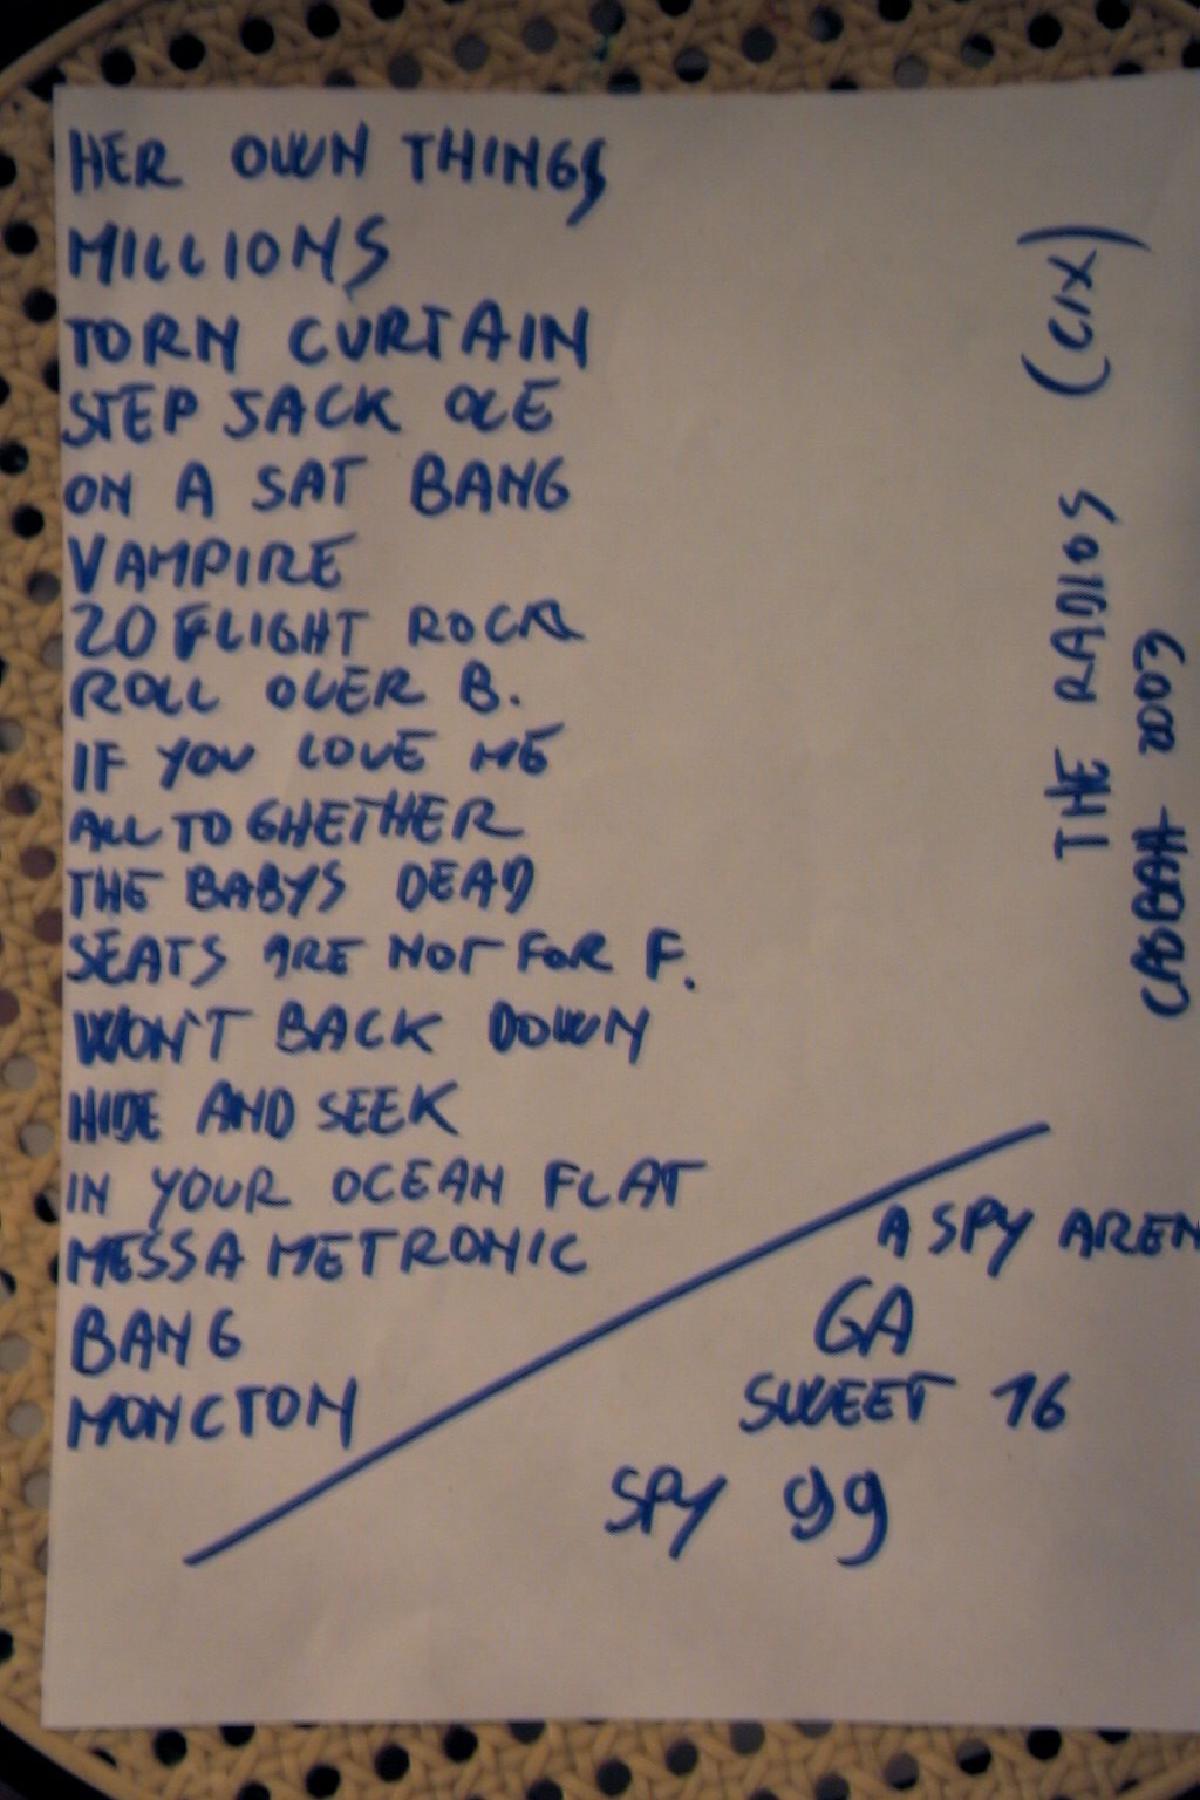 HER OWN THINGS
MILLIONS
TORN CURTAIN
STEP JACK OLE
ON A SAT BANG
VAMPIRE
20 FLIGHT ROCK
ROLL OVER B.
IF YOU LOVE ME
ALL TOGHETHER
THE BABYS DEAD
SEATS ARE NOT FOR F.
WON'T BACK DOWN
HIDE AND SEEK
IN YOUR OCEAN FLAT
MESSA METRONIC
BANG
MONCTON
A SPY AREN
GA
SWEET 16
SPY 99
THE RADIOS (CIX)
2003